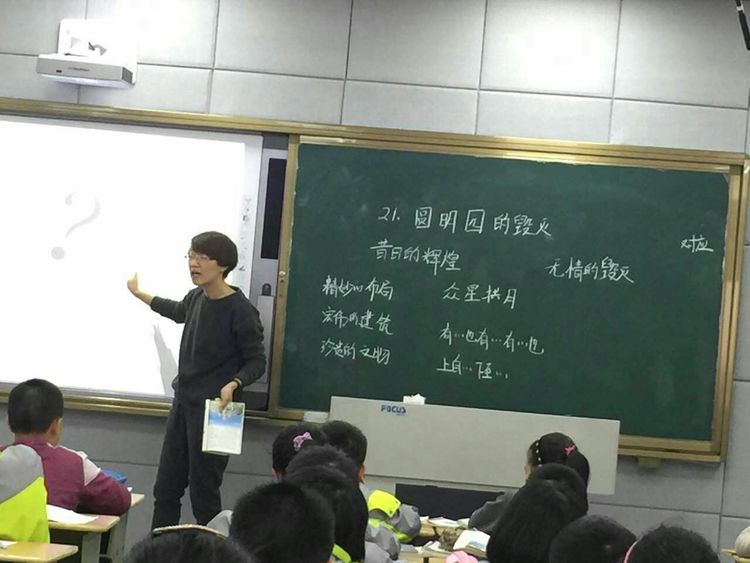 ?
21. 圆明园的毁灭
昔日的辉煌
无情的毁灭
对应
精妙的布局
众星拱月
宏伟的建筑
有…也有…有…也
珍贵的文物
上自…下至…
FOCUS